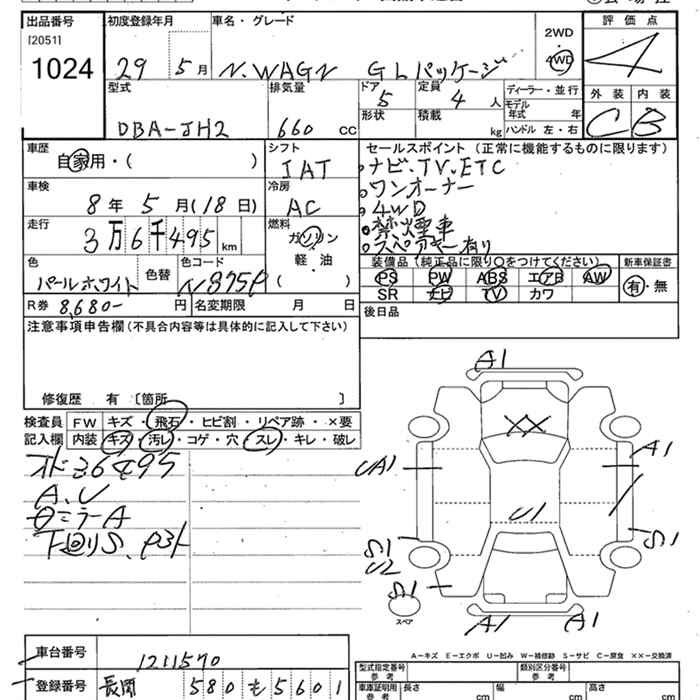 出品番号 初度登録年月 車名・グレード 評価点
[2051]
1024
29 5月 N.WAGN GLパッケージ 2WD 4WD 4
型式 排気量 ドア 定員 ディーラー・並行 外装 内装
DBA-JH2 660 CC 5 4人 モデル年式 年 C B
形状 積載 kg ハンドル 左・右
車歴 シフト セールスポイント (正常に機能するものに限ります)
自家用・( ) IAT ナビ.TV.ETC
車検 冷房 ワンオーナー
8年 5月(18日) AC 4WD
走行 燃料 禁煙車
3万6千495km ガソリン スペアキー有り
軽油
( )
色 色替 色コード 装備品(純正品に限り○をつけてください) 新車保証書
パールホワイト NH875P PS PW ABS エアB AW 有・無
SR ナビ TV カワ
R券 8,680- 円 名変期限 月 日 後日品
注意事項申告欄(不具合内容等は具体的に記入して下さい)
修復歴 有 [箇所 ]
検査員記入欄 FW キズ・飛石・ヒビ割・リペア跡・×要
内装 キズ・汚レ・コゲ・穴・スレ・キレ・破レ
オド36495
A.U
下回りS.
A1
XX
UA1 A1
U1
S1 S1
U2
S1
スペア
A1 A1
A-キズ E-エクボ U-凹み W-補修跡 S-サビ C-腐食 XX-交換済
車台番号 1211570
登録番号 長岡 580 も 5601
型式指定番号 参考 類別区分番号 参考
車庫証明用 参考 長さ cm 幅 cm 高さ cm